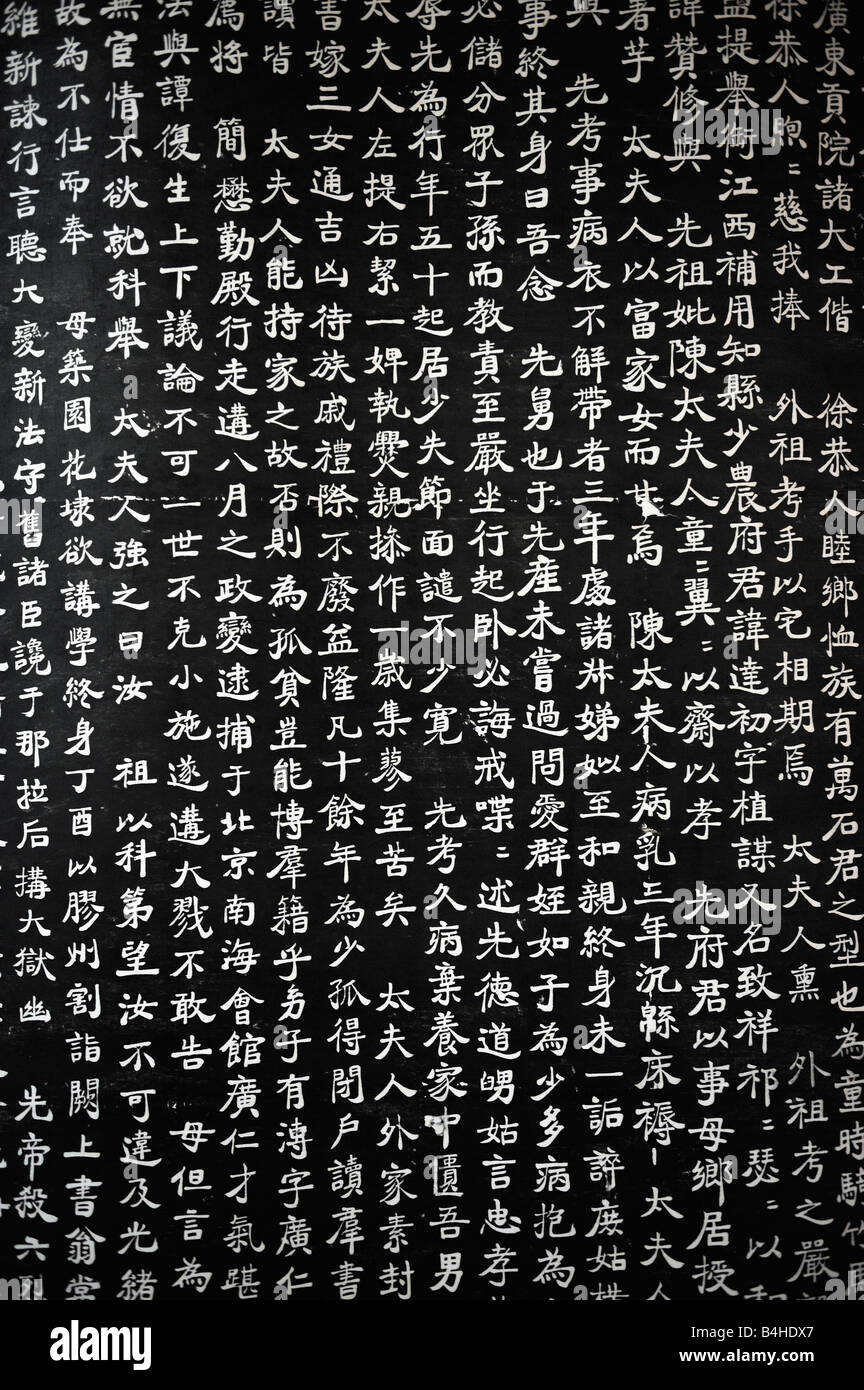 廣東貢院諸大工偕　徐恭人睦鄉恤族有萬石君之型也為童時騎竹
徐恭人煦〻慈我捧　外祖考手以宅相期焉　太夫人熏　外祖考之嚴
鹽提舉銜江西補用知縣少農府君諱達初字植謀又名致祥祁〻瑟〻以和
諱贊修與　先祖妣陳太夫人童〻翼〻以齋以孝　先府君以事母鄉居授
著芋　太夫人以富家女而甘焉　陳太夫人病乳三年沉緜床褥太夫人
與　先考事病衣不解帶者三年處諸姊娣姒至和親終身未一詬誶庶姑
事終其身曰吾念　先舅也于先產未嘗過問愛群姪如子為少多病抱為
必儲分眾子孫而教責至嚴坐行起臥必誨戒喋〻述先德道舅姑言忠孝
辱先為行年五十起居少失節面譴不少寬　先考久病棄養家中匱吾男
太夫人左提右絜一婢執爨親操作一歲集蓼至苦矣　太夫人外家素封
書嫁三女通吉凶待族戚禮際不廢益隆凡十餘年為少孤得閉戶讀羣書
讀皆　太夫人能持家之故否則為孤貧豈能博羣籍乎㓜子有溥字廣仁
為將　簡懋勤殿行走遘八月之政變逮捕于北京南海會館廣仁才氣踸
法與譚復生上下議論不可一世不克小施遂遘大戮不敢告　母但言為
無宦情不欲就科舉　太夫人強之曰汝　祖以科第望汝不可違及光緒
故為不仕而奉　母築園花埭欲講學終身丁酉以膠州割詣闕上書翁常
維新諫行言聽大變新法守舊諸臣讒于那拉后搆大獄幽　先帝殺六烈
alamy
Image ID: B4HDX7
www.alamy.com